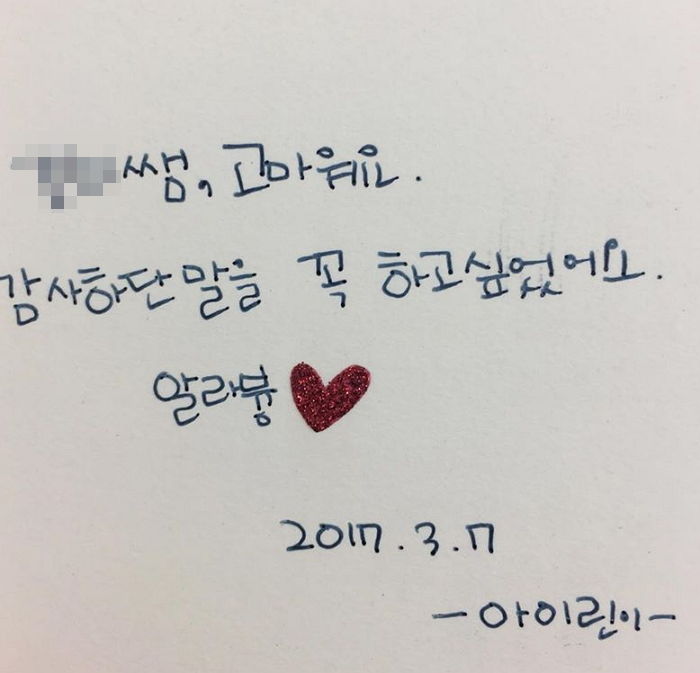 쌤, 고마워요.
감사하단 말을 꼭 하고싶었어요.
알라뷰
2017.3.7
-아이린이-